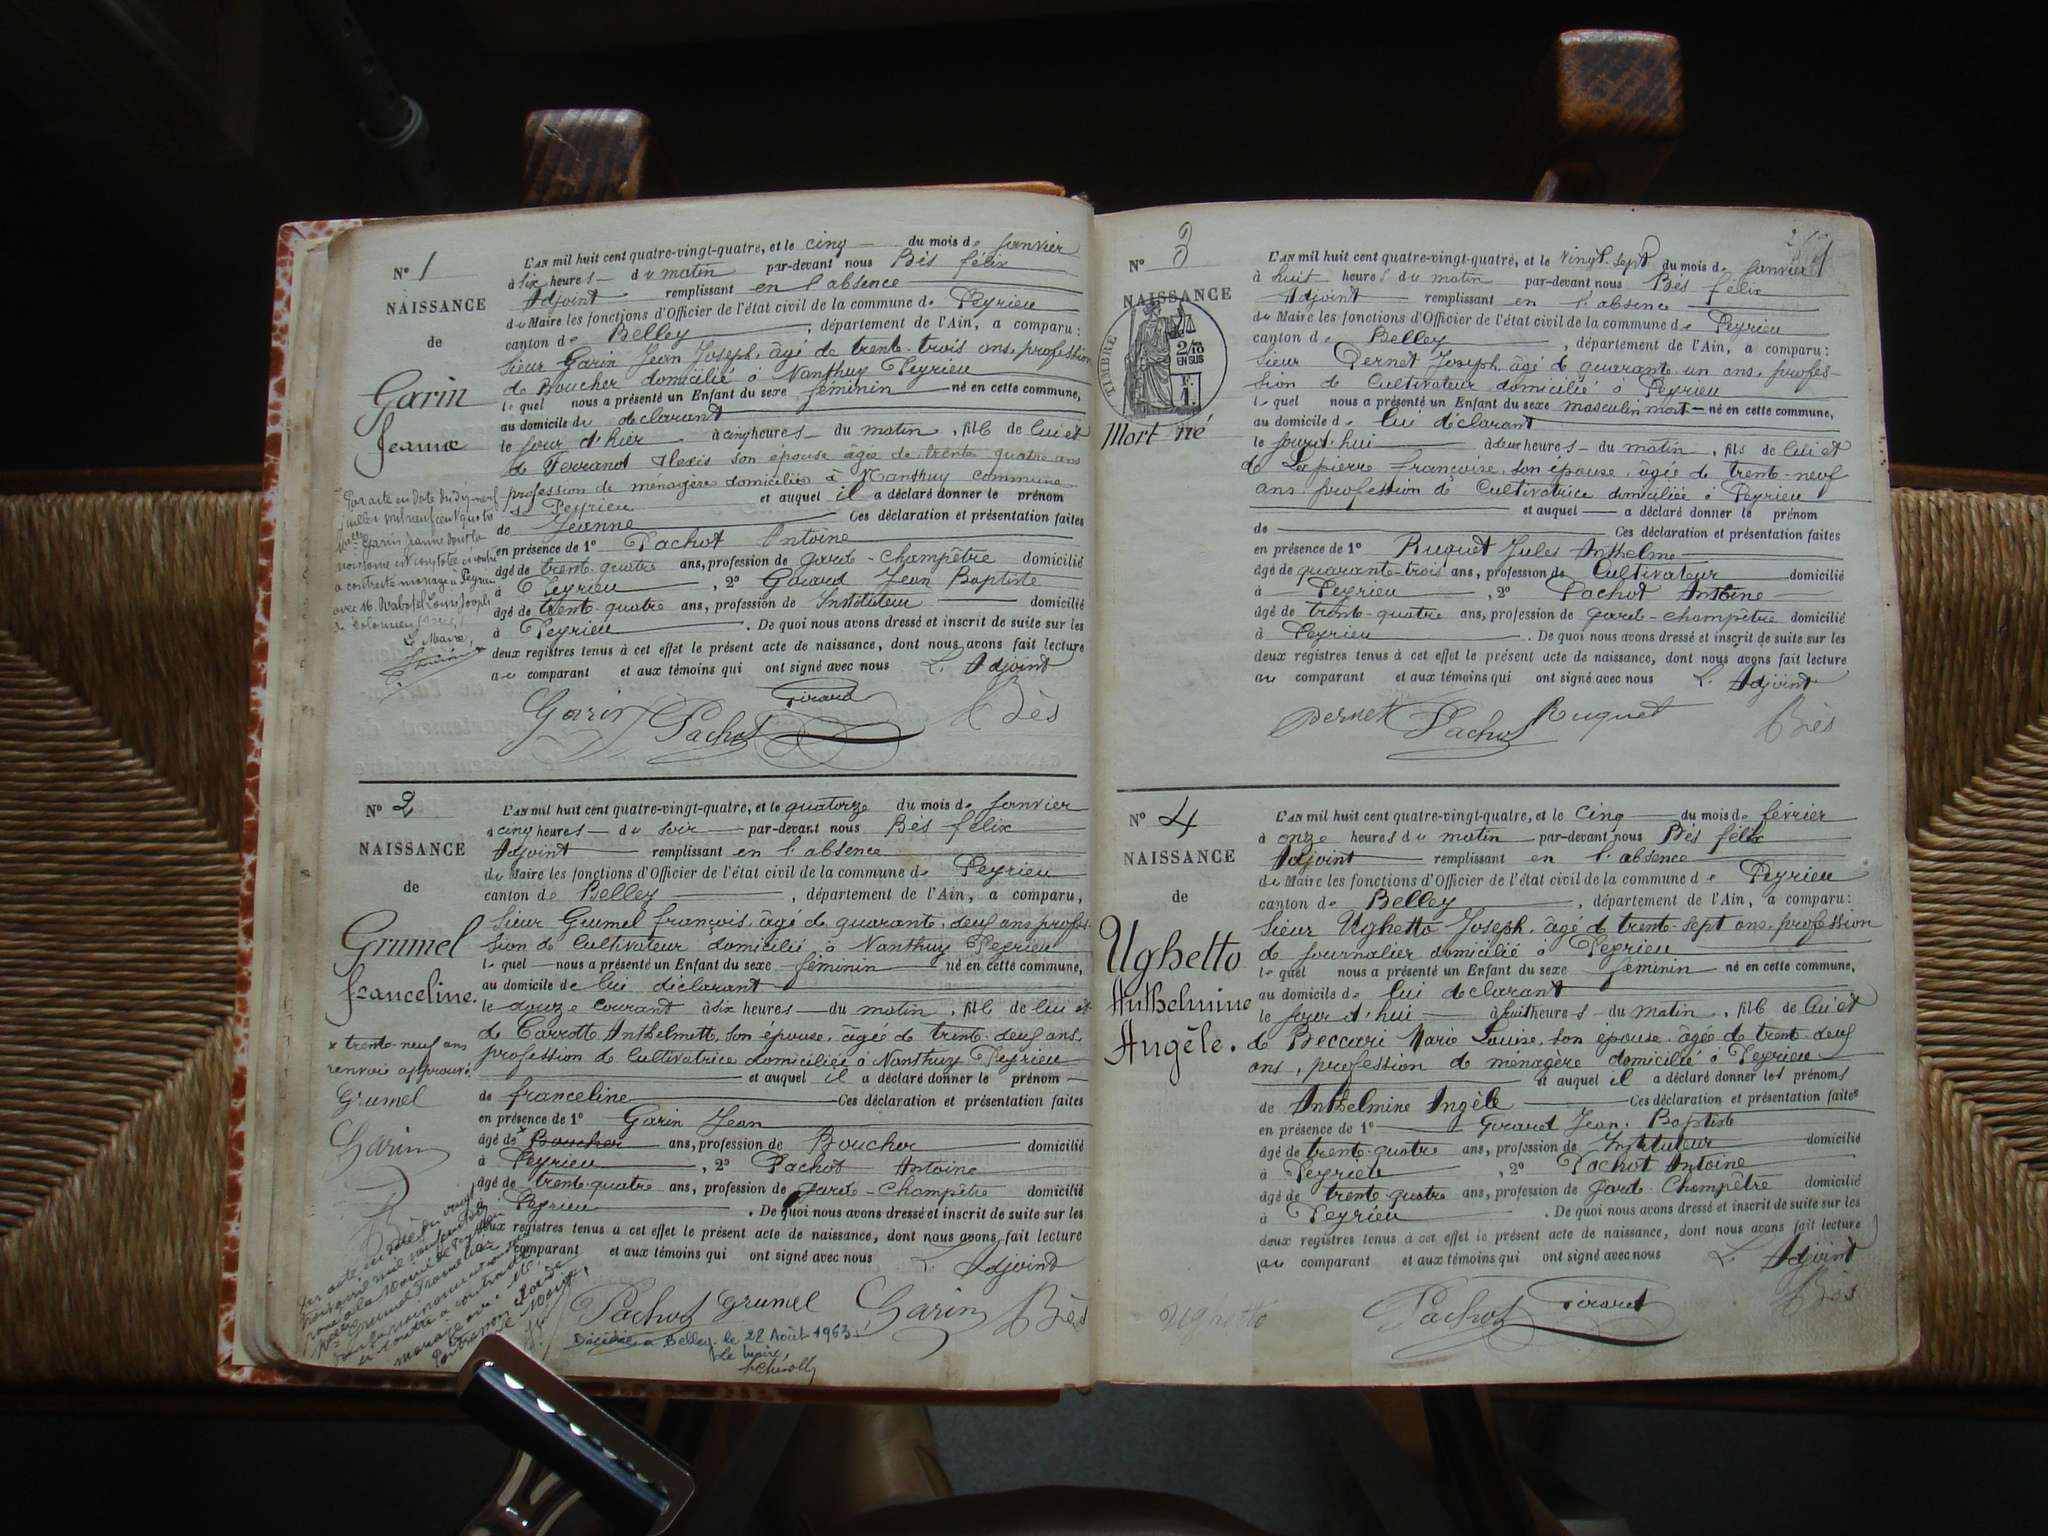 N° 1
NAISSANCE
de
Garin
Jeanne
L'AN mil huit cent quatre-vingt-quatre, et le cinq du mois de Janvier
à six heures du matin par-devant nous Bès félix
Adjoint remplissant en l'absence
du Maire les fonctions d'Officier de l'état civil de la commune de Peyrieu
canton de Belley, département de l'Ain, a comparu:
Sieur Garin Jean Joseph, âgé de trente-trois ans, profession
de Boucher domicilié à Nanthuy Peyrieu
lequel nous a présenté un Enfant du sexe féminin né en cette commune,
au domicile du déclarant
le jour d'hier à cinq heures du matin, fille de lui et
de Ferrand Alexis son épouse âgée de trente quatre ans
profession de menagère domiciliée à Nanthuy commune
de Peyrieu et auquel il a déclaré donner le prénom
de Jeanne Ces déclaration et présentation faites
en présence de 1° Pachot Antoine
âgé de trente-quatre ans, profession de garde-champêtre domicilié
à Peyrieu, 2° Girard Jean Baptiste
âgé de trente-quatre ans, profession de Instituteur domicilié
à Peyrieu. De quoi nous avons dressé et inscrit de suite sur les
deux registres tenus à cet effet le présent acte de naissance, dont nous avons fait lecture
au comparant et aux témoins qui ont signé avec nous L'Adjoint
Par acte en date du dix-neuf
juillet mil neuf cent quatre
Melle Garin Jeanne dont la
naissance est constatée ci contre
a contracté mariage à Peyrieu
Le Maire,
Girard
Garin Pachot Bès
N° 2
NAISSANCE
de
Grumel
franceline.
L'AN mil huit cent quatre-vingt-quatre, et le quatorze du mois de Janvier
à cinq heures du soir par-devant nous Bès félix
Adjoint remplissant en l'absence
du Maire les fonctions d'Officier de l'état civil de la commune de Peyrieu
canton de Belley, département de l'Ain, a comparu,
Sieur Grumel françois, âgé de quarante-deux ans, profes-
sion de Cultivateur domicilié à Nanthuy Peyrieu
lequel nous a présenté un Enfant du sexe féminin né en cette commune,
au domicile de lui déclarant
le douze courant à six heures du matin, fille de lui et
de Carrotte Anthelmette, son épouse, âgée de trente-deux ans,
profession de Cultivatrice domiciliée à Nanthuy Peyrieu
et auquel il a déclaré donner le prénom
de franceline Ces déclaration et présentation faites
en présence de 1° Garin Jean
âgé de x Boucher ans, profession de Boucher domicilié
à Peyrieu, 2° Pachot Antoine
âgé de trente-quatre ans, profession de garde-champêtre domicilié
à Peyrieu. De quoi nous avons dressé et inscrit de suite sur les
deux registres tenus à cet effet le présent acte de naissance, dont nous avons fait lecture
comparant et aux témoins qui ont signé avec nous L'Adjoint
x trente-neuf ans
renvoi approuvé.
Grumel
Garin
Bès
Pachot Grumel Garin Bès
Décédée à Belley le 22 Août 1963
Le Maire,
N° 3
NAISSANCE
TIMBRE
2/10
EN SUS
F.
1.
Mort né
L'AN mil huit cent quatre-vingt-quatre, et le vingt-sept du mois de Janvier
à huit heures du matin par-devant nous Bès félix
Adjoint remplissant en l'absence
du Maire les fonctions d'Officier de l'état civil de la commune de Peyrieu
canton de Belley, département de l'Ain, a comparu:
Sieur Pernet Joseph, âgé de quarante-un ans, profes-
sion de Cultivateur domicilié à Peyrieu
lequel nous a présenté un Enfant du sexe masculin mort né en cette commune,
au domicile de lui déclarant
le jourd'hui à deux heures du matin, fils de lui et
de Lapierre françoise, son épouse, âgée de trente-neuf
ans, profession de Cultivatrice domiciliée à Peyrieu
et auquel a déclaré donner le prénom
de Ces déclaration et présentation faites
en présence de 1° Ruquet Jules Anthelme
âgé de quarante-trois ans, profession de Cultivateur domicilié
à Peyrieu, 2° Pachot Antoine
âgé de trente-quatre ans, profession de garde-champêtre domicilié
à Peyrieu. De quoi nous avons dressé et inscrit de suite sur les
deux registres tenus à cet effet le présent acte de naissance, dont nous avons fait lecture
au comparant et aux témoins qui ont signé avec nous L'Adjoint
Pernet Pachot Ruquet Bès
N° 4
NAISSANCE
de
Ughetto
Anthelmine
Angèle.
L'AN mil huit cent quatre-vingt-quatre, et le cinq du mois de février
à onze heures du matin par-devant nous Bès félix
Adjoint remplissant en l'absence
du Maire les fonctions d'Officier de l'état civil de la commune de Peyrieu
canton de Belley, département de l'Ain, a comparu:
Sieur Ughetto Joseph, âgé de trente-sept ans, profession
de Journalier domicilié à Peyrieu
lequel nous a présenté un Enfant du sexe féminin né en cette commune,
au domicile de lui déclarant
le jour d'hui à huit heures du matin, fille de lui et
de Beccari Marie Louise, son épouse, âgée de trente-deux
ans, profession de ménagère domicilié à Peyrieu
et auquel il a déclaré donner les prénoms
de Anthelmine Angèle Ces déclaration et présentation faites
en présence de 1° Girard Jean-Baptiste
âgé de trente-quatre ans, profession de Instituteur domicilié
à Peyrieu, 2° Pachot Antoine
âgé de trente-quatre ans, profession de garde-Champêtre domicilié
à Peyrieu. De quoi nous avons dressé et inscrit de suite sur les
deux registres tenus à cet effet le présent acte de naissance, dont nous avons fait lecture
au comparant et aux témoins qui ont signé avec nous L'Adjoint
Ughetto Pachot Girard Bès